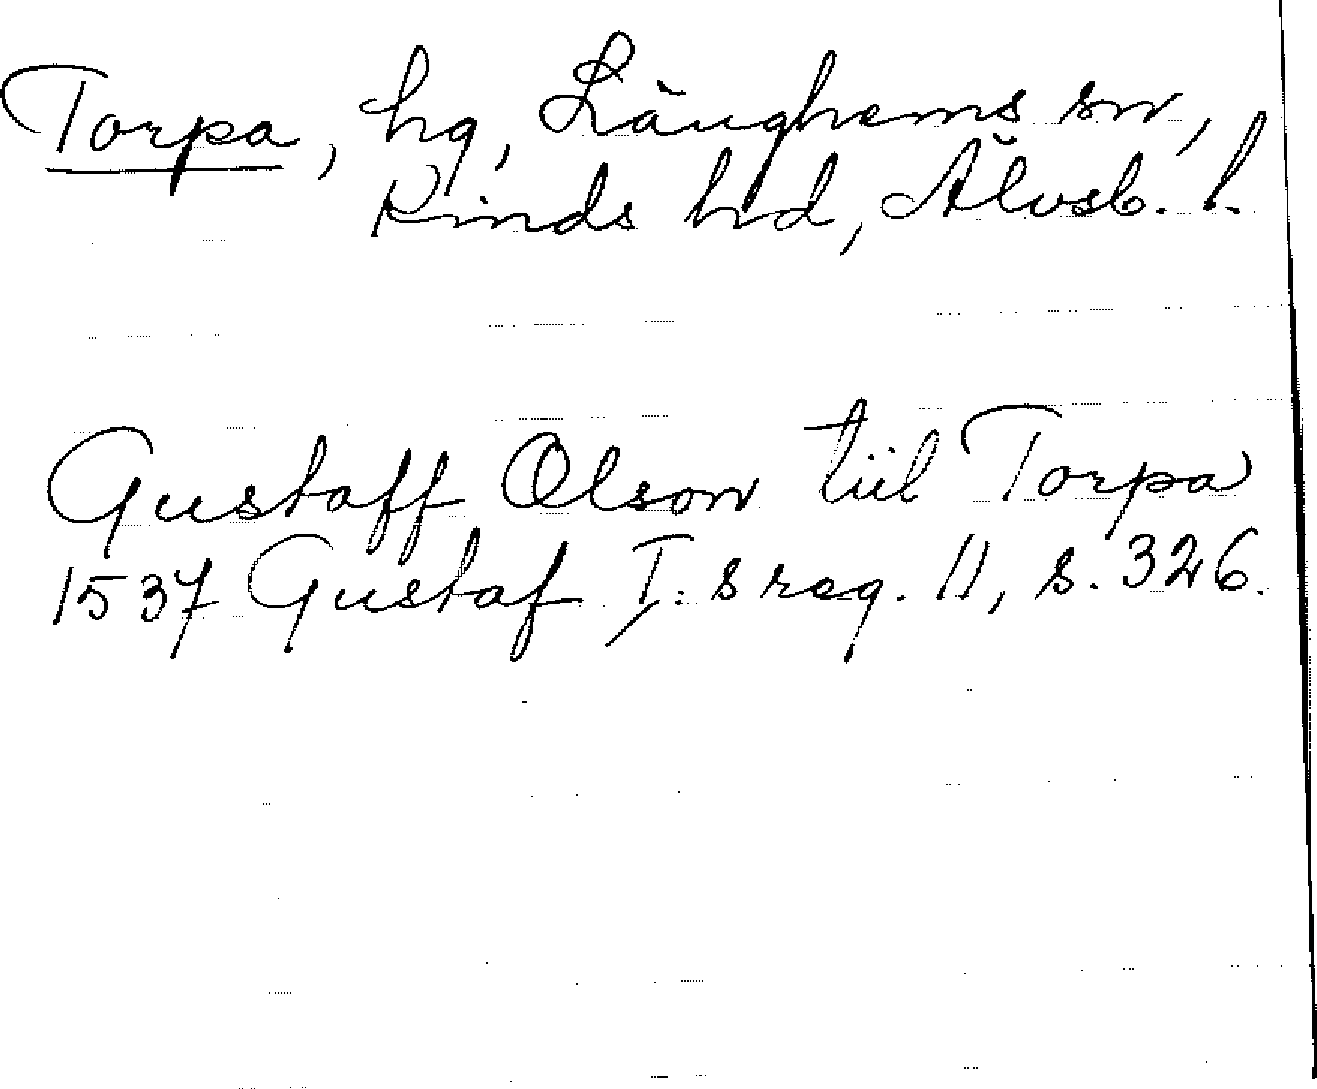 Torpa, hg, Länghems sn,
Kinds hd, Älvsb. l.
Gustaff Olson tiil Torpa
1537 Gustaf I:s reg. 11, s. 326.